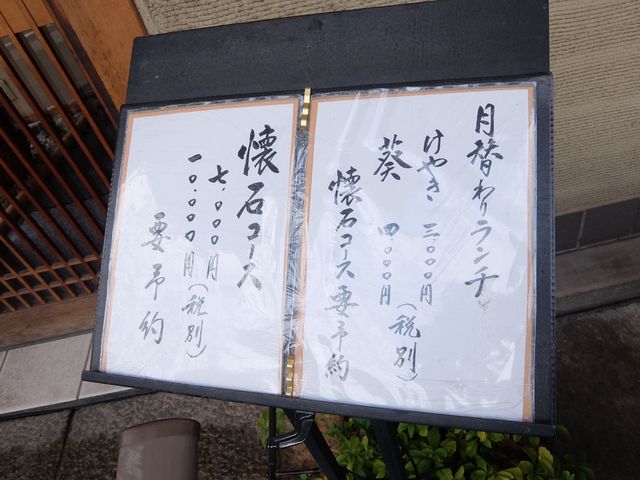 月替わりランチ
けやき 三.〇〇〇円
葵 四.〇〇〇円
(税別)
懐石コース 要予約
懐石コース
七.〇〇〇円
一〇.〇〇〇円(税別)
要予約